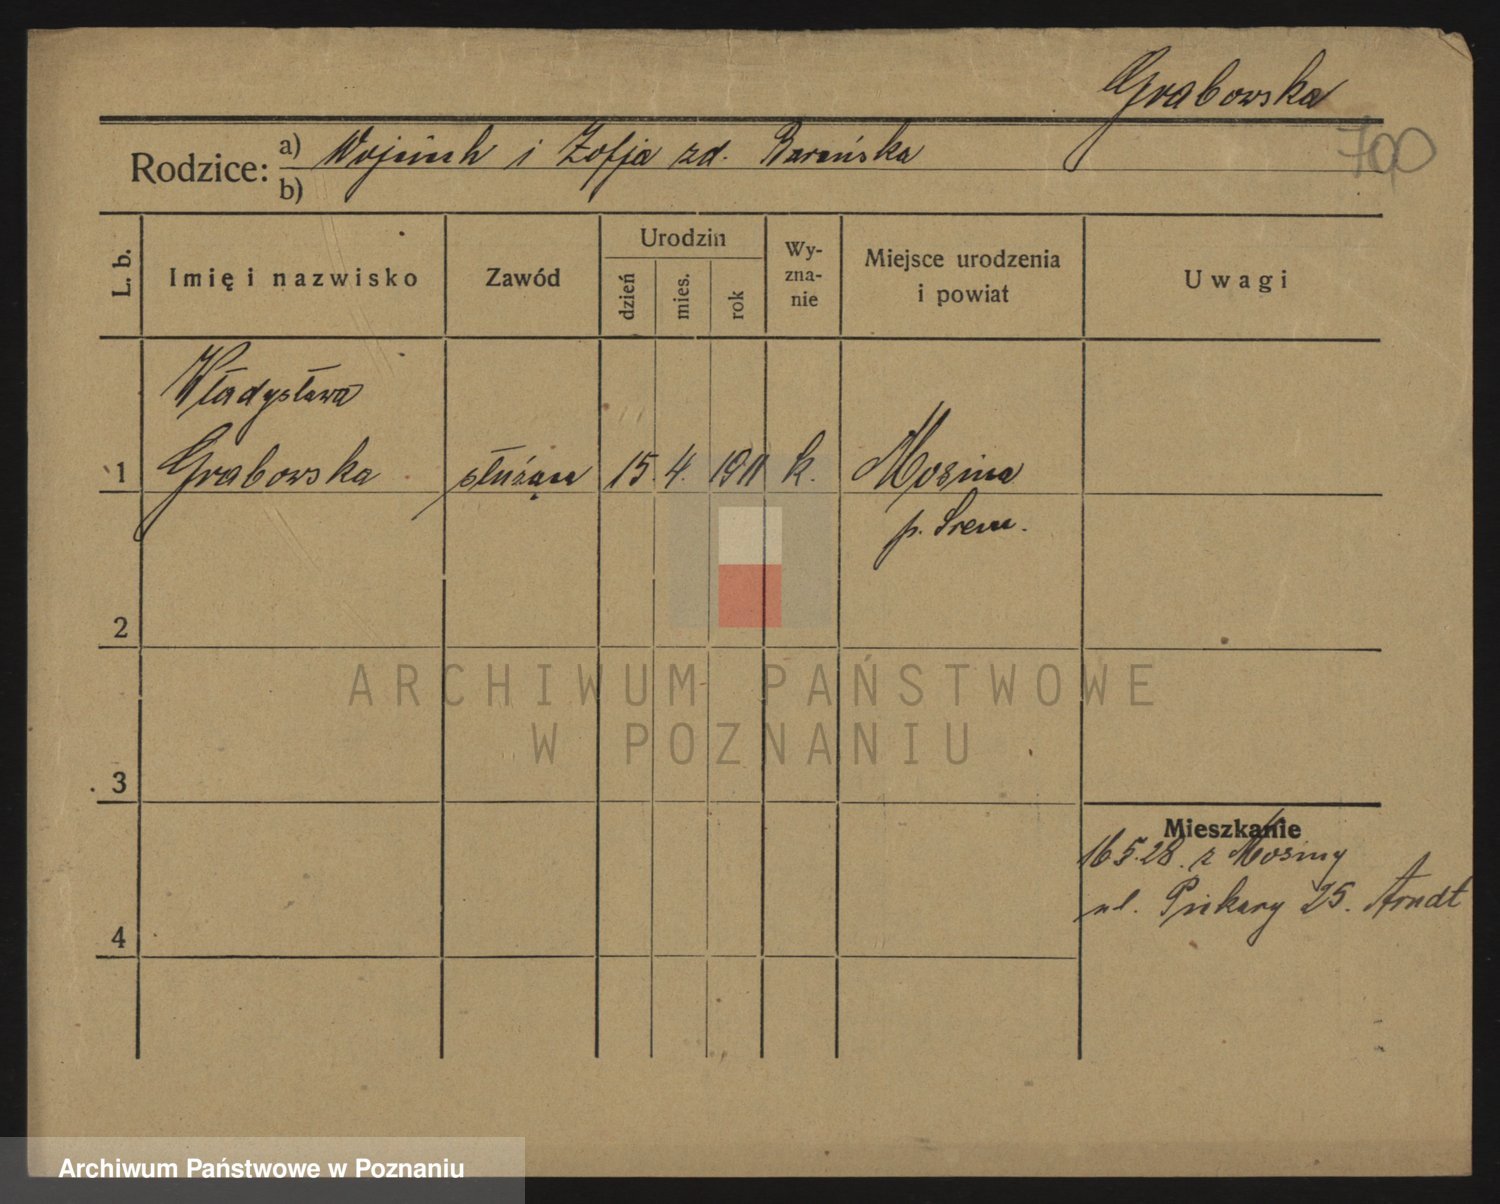 Grabowska
700
Rodzice: a) Wojciech i Zofja zd. Barańska
b)
L. b.
Imię i nazwisko
Zawód
Urodzin
dzień
mies.
rok
Wy-
zna-
nie
Miejsce urodzenia
i powiat
Uwagi
Władysława
1 Grabowska służąca 15. 4. 1911 k. Mosina
p. Śrem.
2
3
4
Mieszkanie
16.5.28. z Mosiny
ul. Piekary 25. Arndt
ARCHIWUM PAŃSTWOWE
W POZNANIU
Archiwum Państwowe w Poznaniu